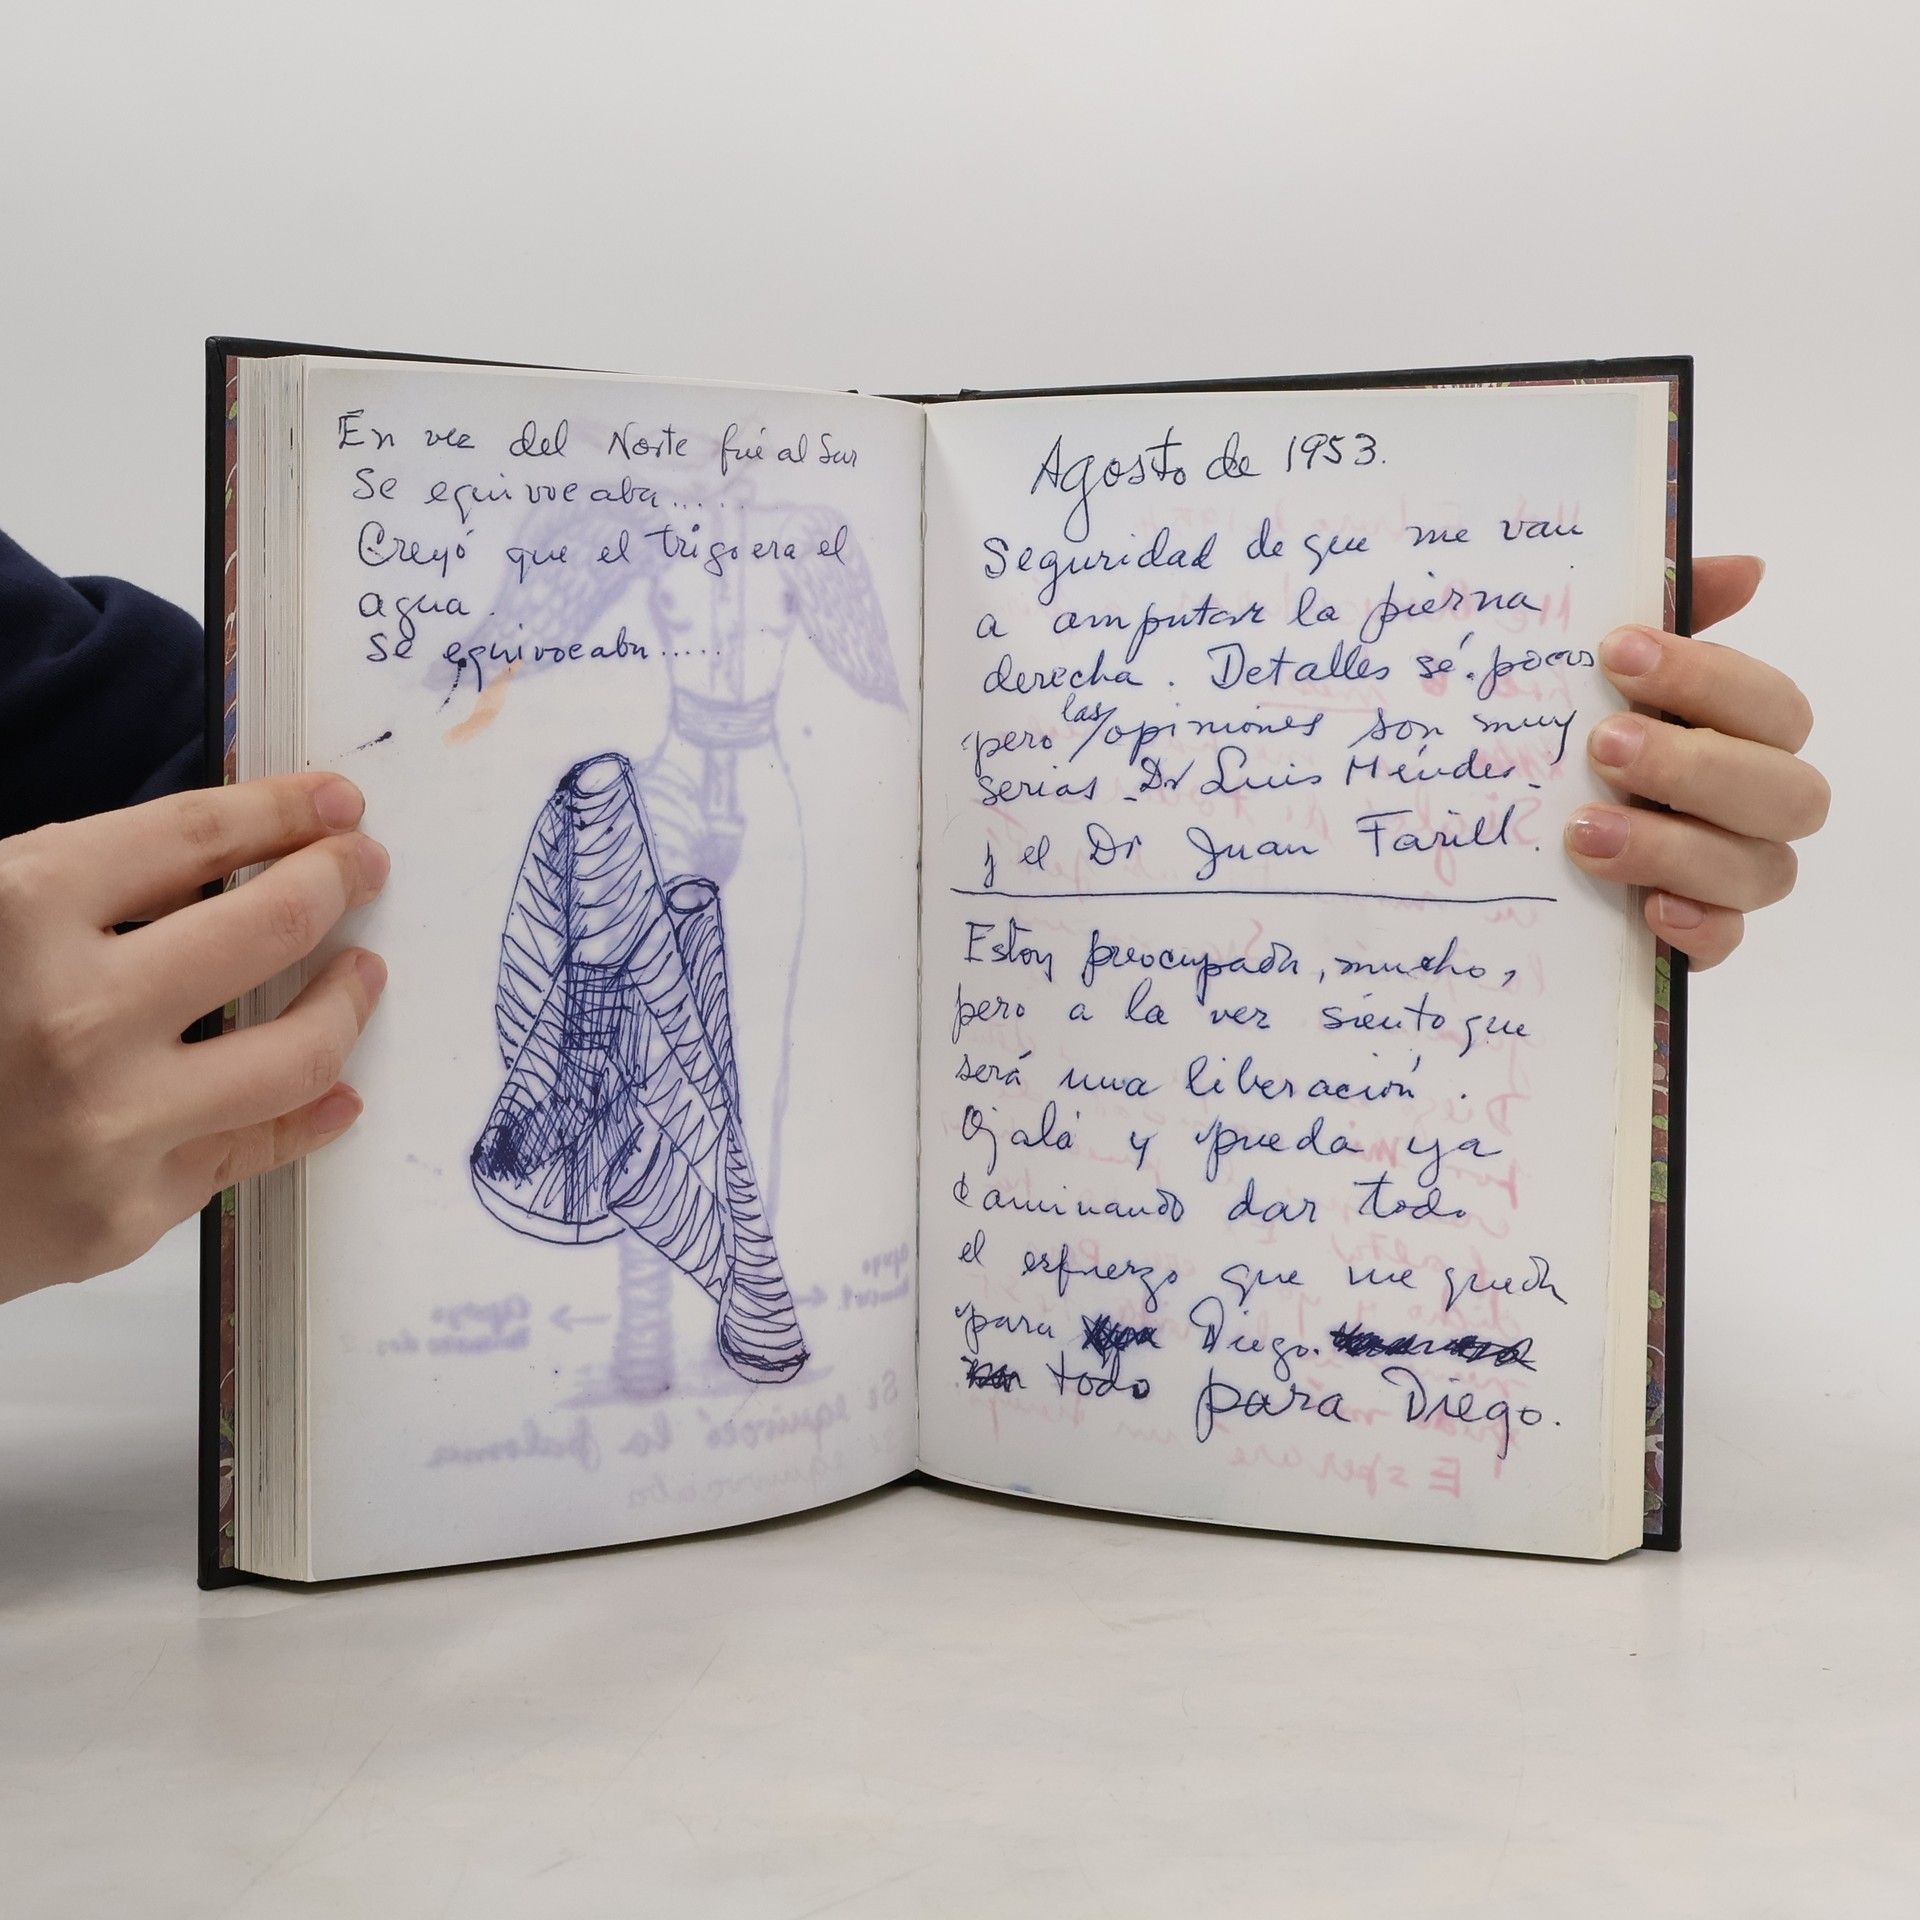 En vez del Norte fué al Sur
Se equivocaba.....
Creyó que el trigo era el
agua.
Se equivocaba.....
Agosto de 1953.
Seguridad de que me van
a amputar la pierna
derecha. Detalles sé pocos
pero las opiniones son muy
serias - Dr Luis Méndez -
y el Dr Juan Farill.
Estoy preocupada, mucho,
pero a la vez siento que
será una liberación.
Ojalá y pueda ya
caminando dar todo
el esfuerzo que me queda
para Diego.
todo para Diego.